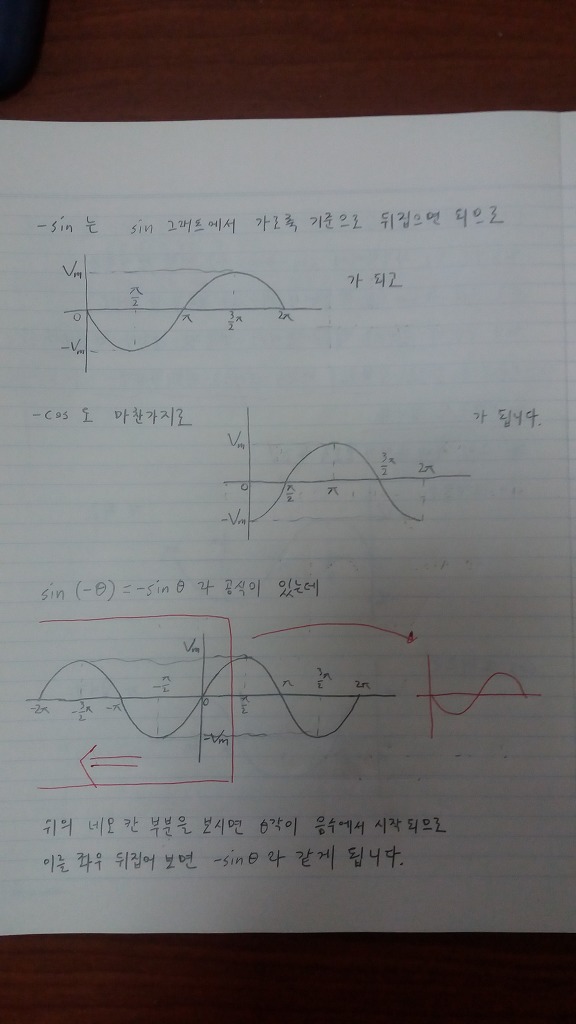 -sin 는 sin 그래프에서 가로축 기준으로 뒤집으면 되므로
Vm
π/2
가 되고
0
π
3/2π
2π
-Vm
-cos 도 마찬가지로
가 됩니다.
Vm
3/2π
2π
0
π/2
π
-Vm
sin (-θ) = -sinθ 라 공식이 있는데
Vm
-π/2
3/2π
-2π
-3/2π
-π
0
π/2
π
2π
-Vm
위의 네모 칸 부분을 보시면 θ각이 음수에서 시작 되므로
이를 좌우 뒤집어 보면 -sinθ 라 같게 됩니다.